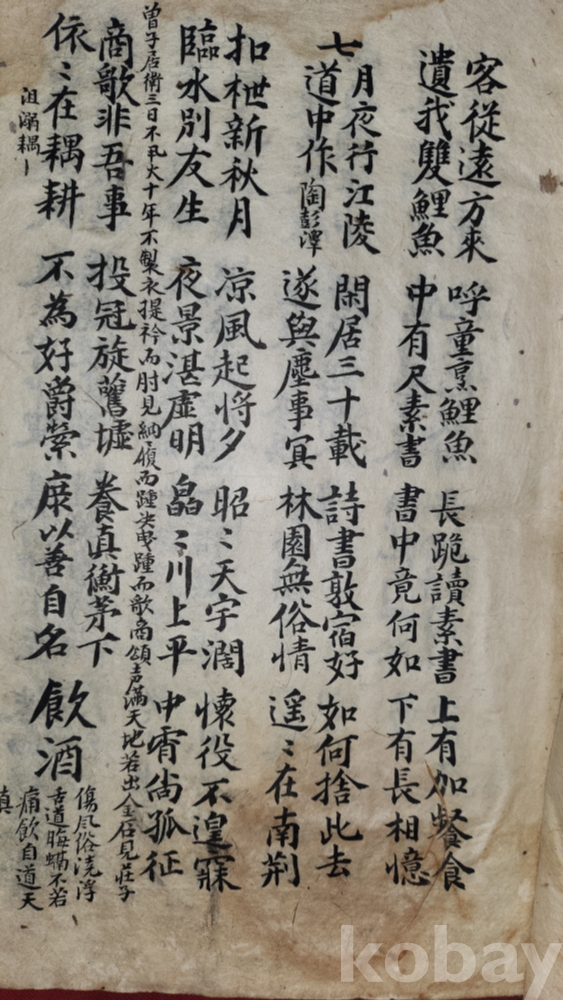 客從遠方來
遺我雙鯉魚
呼童烹鯉魚
中有尺素書
長跪讀素書
書中竟何如
上有加餐食
下有長相憶
七月夜行江陵
道中作 陶彭潭
閑居三十載
遂與塵事冥
詩書敦宿好
林園無俗情
如何捨此去
遥〻在南荆
扣枻新秋月
臨水別友生
凉風起將夕
夜景湛虛明
昭〻天宇濶
皛〻川上平
懷役不遑寐
中宵尙孤征
曾子居衛三日不火十年不製衣提衿而肘見納履而踵决曳踵而歌商頌声滿天地若出金石見莊子
商歌非吾事
依〻在耦耕
沮溺耦
投冠旋舊墟
不為好爵縈
養真衡茅下
庶以善自名
飮酒
傷風俗澆浮
舌道晦蝕不若
痛飮自道天
真
kobay